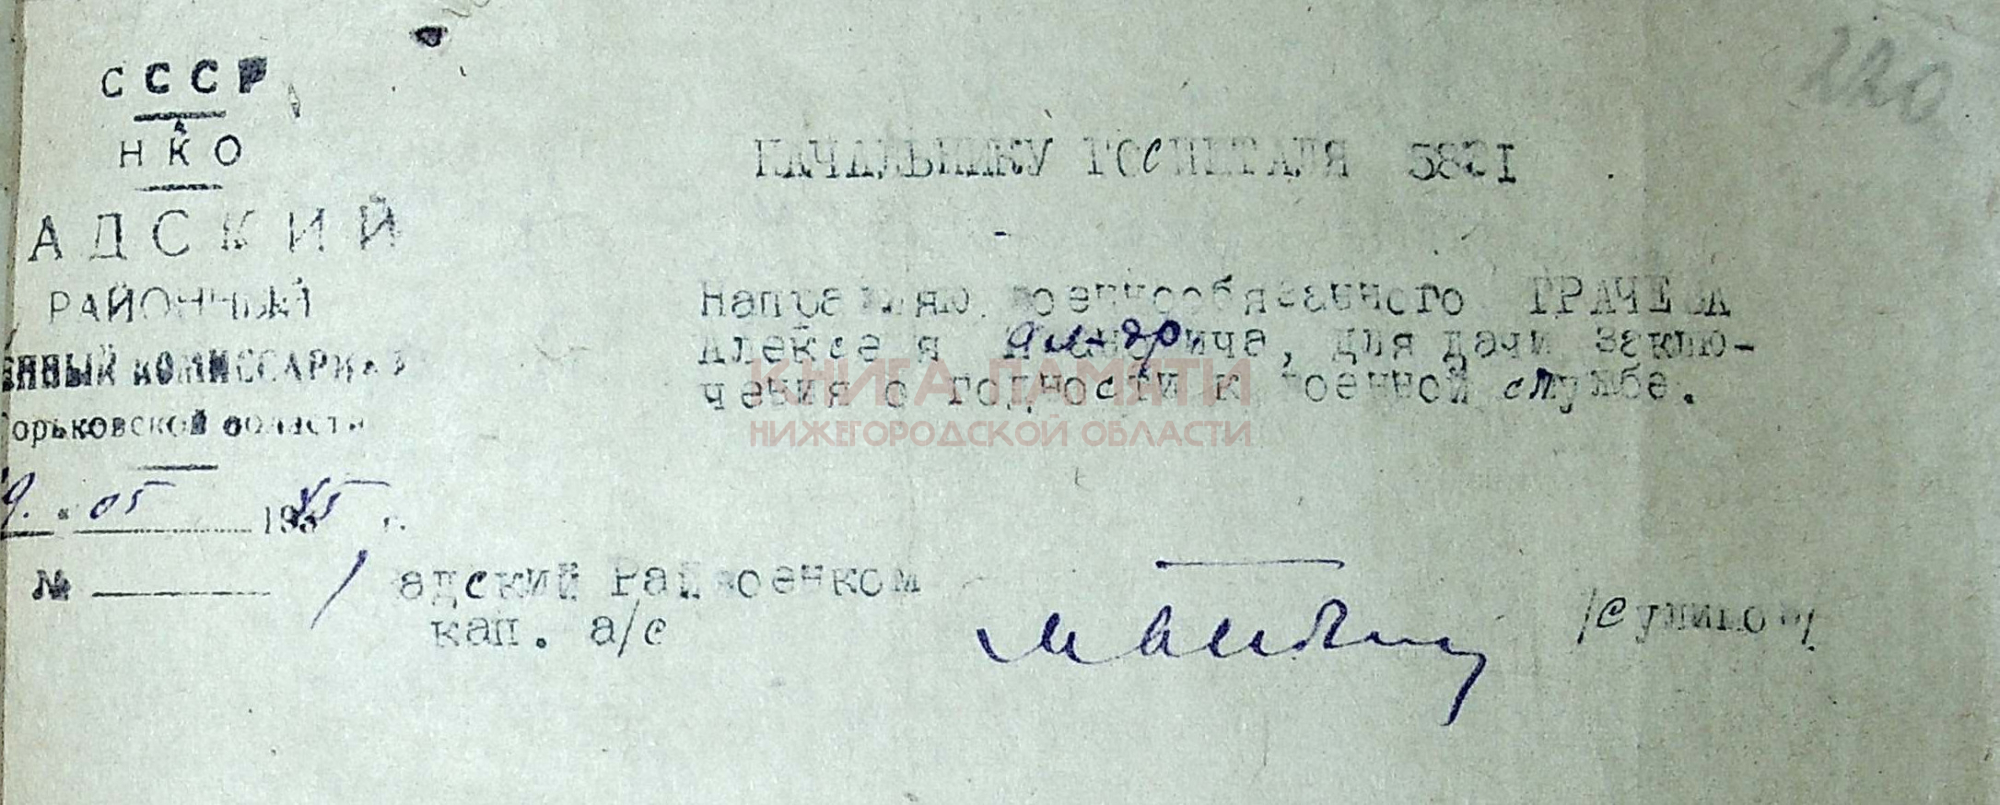 220
СССР
НКО
АДСКИЙ
РАЙОННЫЙ
ЕННЫЙ КОМИССАРИАТ
Горьковской области
9. " 05 1945 г.
№
НАЧАЛЬНИКУ ГОСПИТАЛЯ
Направляю военнообязанного ГРАЧЕВА
Алексея Ивановича, для дачи заклю-
чения о годности к военной службе.
адский Райвоенком
кап. а/с
КНИГА ПАМЯТИ
НИЖЕГОРОДСКОЙ ОБЛАСТИ